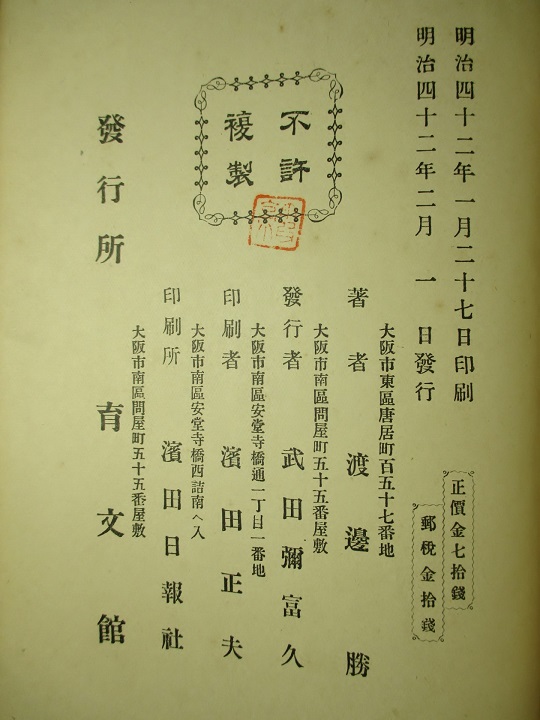 明治四十二年一月二十七日印刷
明治四十二年二月一日發行
正價金七拾錢
郵稅金拾錢
不許
複製
大阪市東區唐居町百五十七番地
著者 渡邊勝
大阪市南區問屋町五十五番屋敷
發行者 武田彌富久
大阪市南區安堂寺橋通一丁目一番地
印刷者 濱田正夫
大阪市南區安堂寺橋西詰南へ入
印刷所 濱田日報社
大阪市南區問屋町五十五番屋敷
發行所 育文館